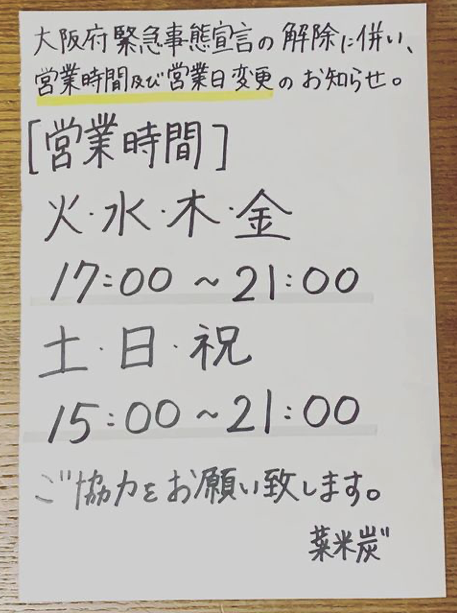 大阪府緊急事態宣言の解除に併い、
営業時間及び営業日変更のお知らせ。
[営業時間]
火・水・木・金
17:00~21:00
土・日・祝
15:00~21:00
ご協力をお願い致します。
菜米炭"